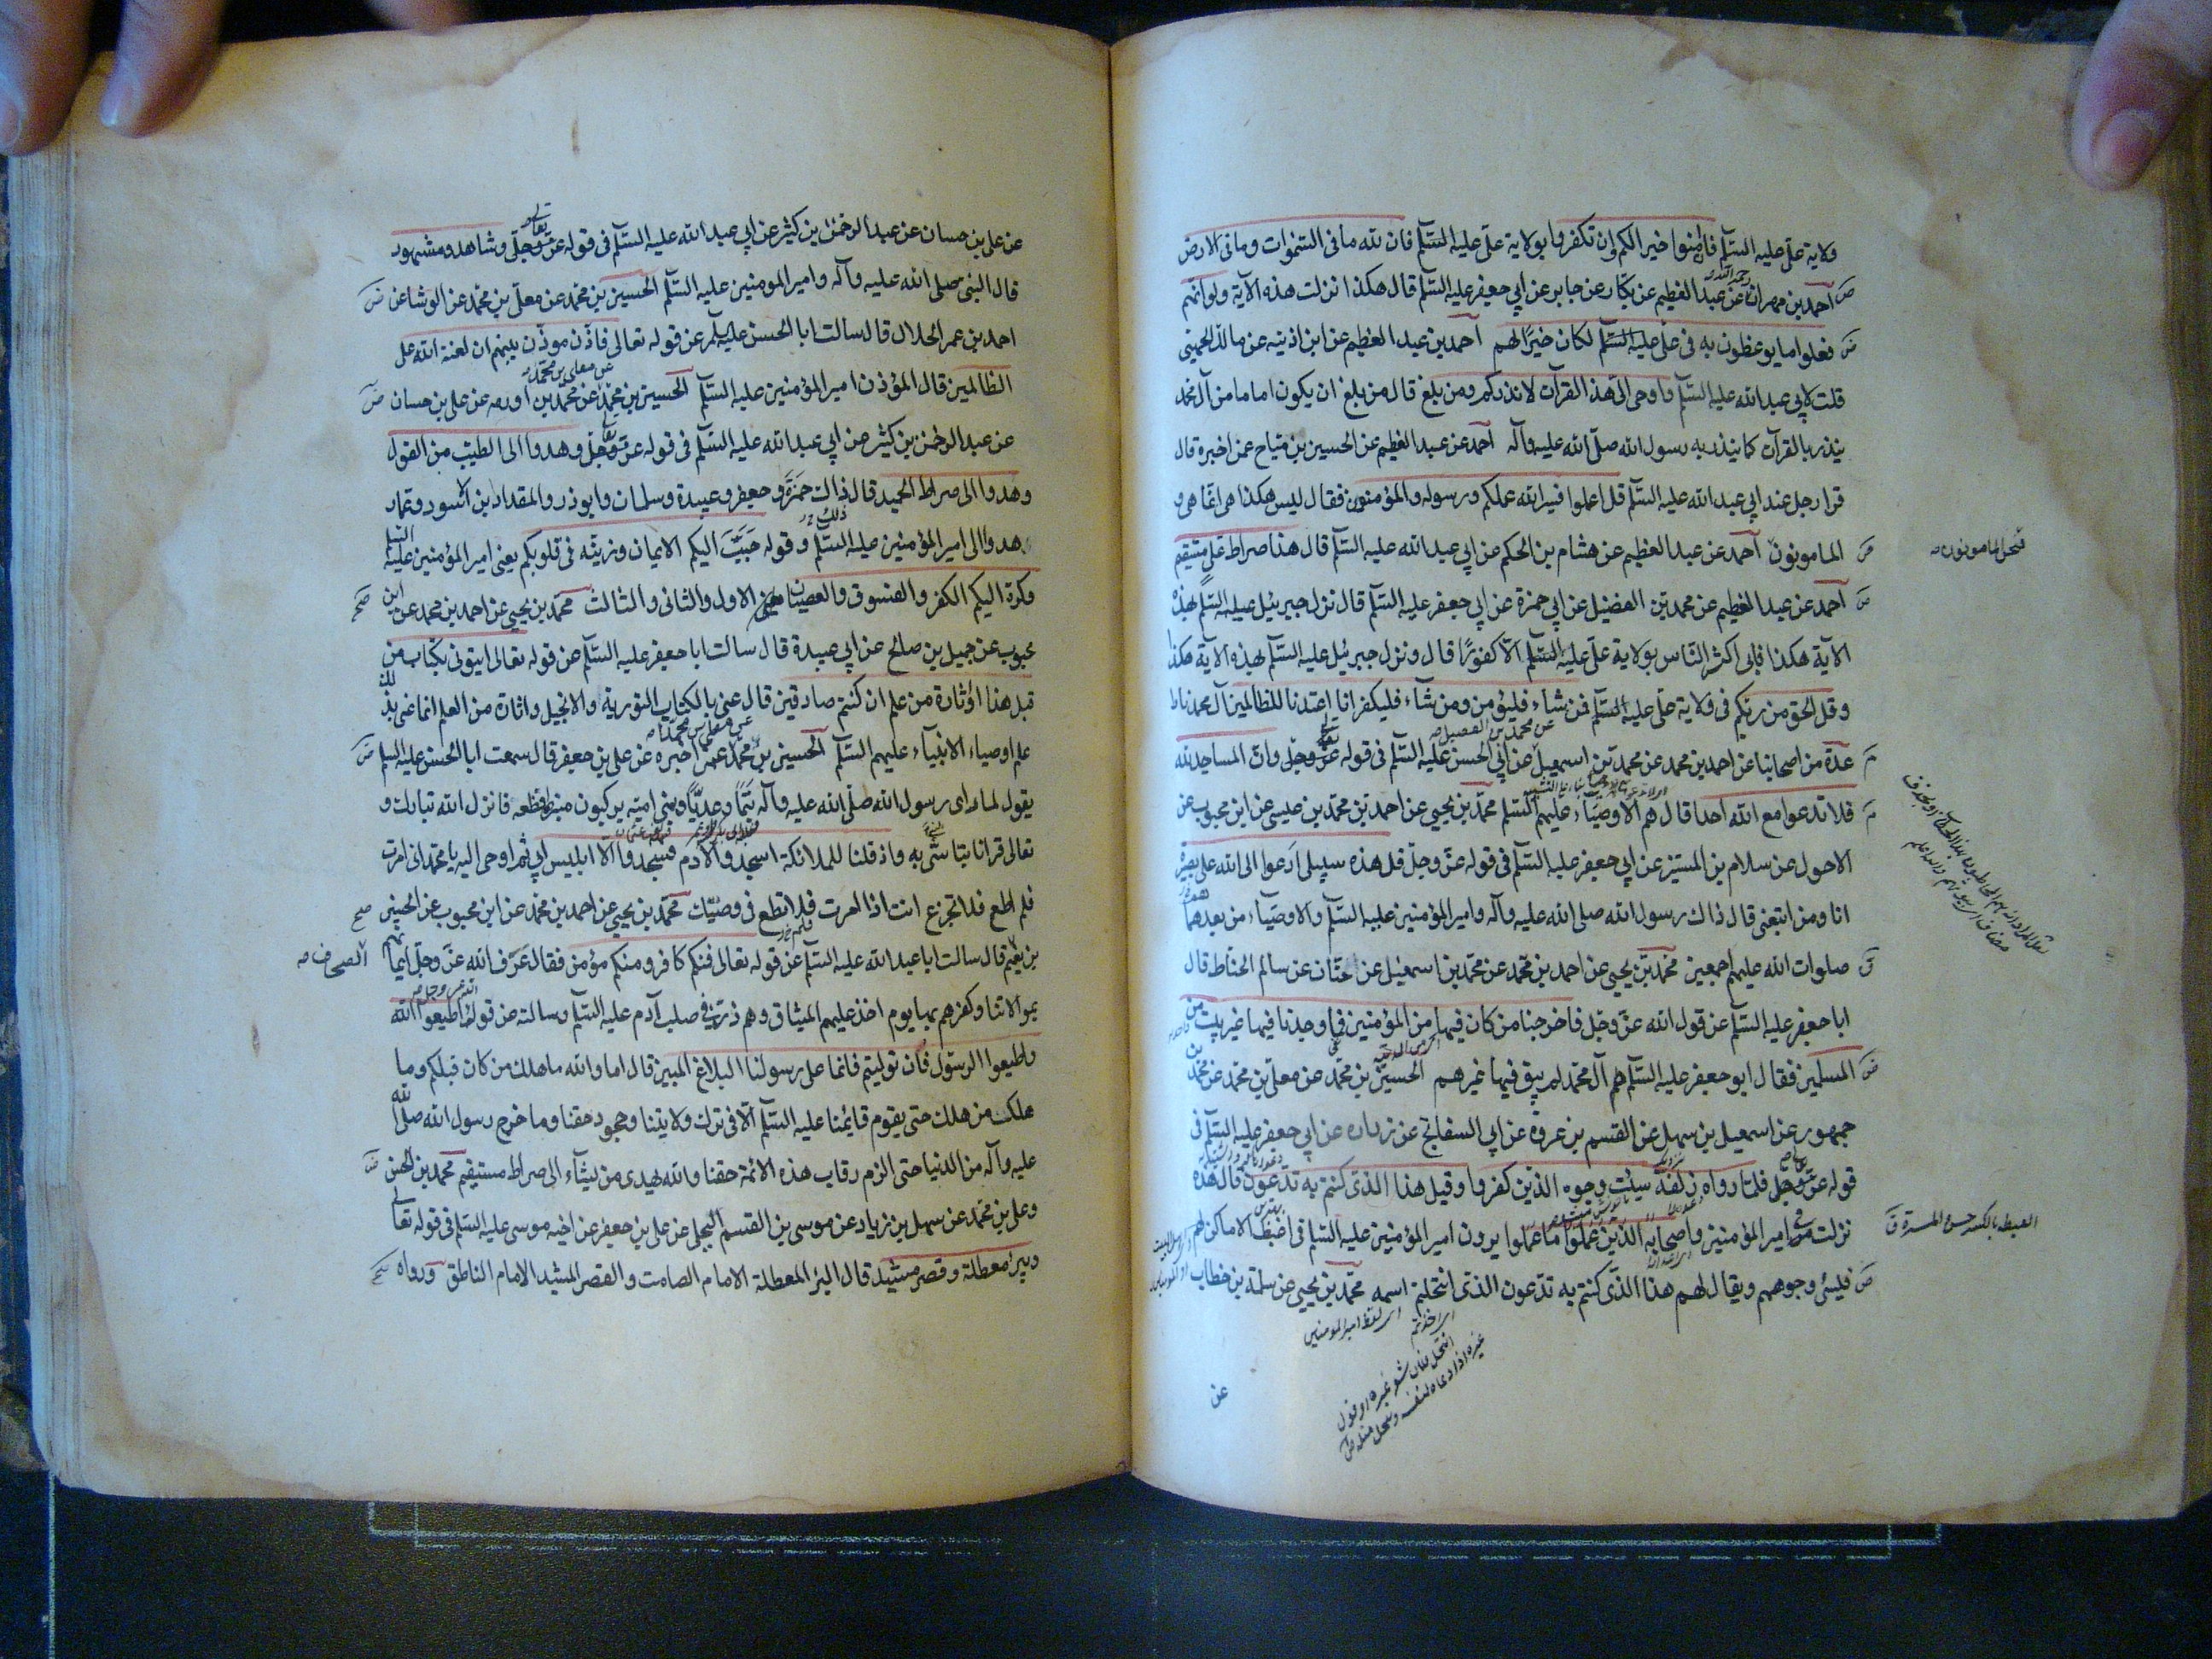 ولاية علي عليه السلم فامنوا خيرا لكم وان تكفروا بولاية علي عليه السلم فان لله ما في السموات وما في الارض
احمد بن مهران رحمه الله عن عبد العظيم عن بكار عن جابر عن ابي جعفر عليه السلم قال هكذا نزلت هذه الآية ولو انهم
فعلوا ما يوعظون به في علي عليه السلم لكان خيرا لهم احمد بن عبد العظيم عن ابن اذينه عن مالك الجهني
قلت لابي عبد الله عليه السلم واوحي الي هذا القرآن لانذركم ومن بلغ قال من بلغ ان يكون اماما من آل محمد
ينذر بالقرآن كما ينذر به رسول الله صلى الله عليه وآله احمد عن عبد العظيم عن الحسين بن مياح عمن اخبره قال
قرا رجل عند ابي عبد الله عليه السلم قل اعملوا فسيرا الله عملكم ورسوله والمؤمنون فقال ليس هكذا هي انما هي و
المامونون احمد عن عبد العظيم عن هشام بن الحكم عن ابي عبد الله عليه السلم قال هذا صراط علي مستقيم
احمد عن عبد العظيم عن محمد بن الفضيل عن ابي حمزة عن ابي جعفر عليه السلم قال نزل جبرئيل عليه السلم بهذه
الآية هكذا فابى اكثر الناس بولاية علي عليه السلم الا كفورا قال ونزل جبرئيل عليه السلم بهذه الآية هكذا
وقل الحق من ربكم في ولاية علي عليه السلم فمن شاء فليؤمن ومن شاء فليكفر انا اعتدنا للظالمين آل محمد نارا
عدة من اصحابنا عن احمد بن محمد عن محمد بن اسمعيل عن محمد بن الفضيل عن ابي الحسن عليه السلم في قوله عز وجل وان المساجد لله
فلا تدعوا مع الله احدا قال هم الاوصياء عليهم السلم محمد بن يحيي عن احمد بن محمد بن عيسى عن ابن محبوب عن
الاحول عن سلام بن المستنير عن ابي جعفر عليه السلم في قوله عز وجل قل هذه سبيلي ادعوا الى الله على بصيرة
انا ومن اتبعني قال ذاك رسول الله صلى الله عليه وآله وامير المؤمنين عليه السلم والاوصياء من بعدهما
صلوات الله عليهم اجمعين محمد بن يحيي عن احمد بن محمد عن محمد بن اسمعيل عن حنان عن سالم الحناط قال
ابا جعفر عليه السلم عن قول الله عز وجل فاخرجنا من كان فيها من المؤمنين فما وجدنا فيها غير بيت من
المسلمين فقال ابو جعفر عليه السلم هم آل محمد لم يبق فيها غيرهم الحسين بن محمد عن معلى بن محمد عن محمد بن
جمهور عن اسمعيل بن سهل عن القسم بن عروة عن ابي السفاتج عن زرارة عن ابي جعفر عليه السلم في
قوله عز وجل فلما راوه زلفة سيئت وجوه الذين كفروا وقيل هذا الذي كنتم به تدعون قال هذه
نزلت في امير المؤمنين واصحابه الذين عملوا ما عملوا يرون امير المؤمنين عليه السلم في اغبط الاماكن لهم
فيسئ وجوههم ويقال لهم هذا الذي كنتم به تدعون الذي انتحلتم اسمه محمد بن يحيي عن سلمة بن خطاب
اي لقظ امير المومنين
الغبطه بالكسر حسن المسرة ق
عن
عن علي بن حسان عن عبد الرحمن بن كثير عن ابي عبد الله عليه السلم في قوله عز وجل وشاهد ومشهود
قال النبي صلى الله عليه وآله وامير المومنين عليه السلم الحسين بن محمد عن معلى بن محمد عن الوشا عن
احمد بن عمر الحلال قال سالت ابا الحسن عليه السلم عن قوله تعالى فاذن موذن بينهم ان لعنة الله على
الظالمين قال المؤذن امير المؤمنين عليه السلم الحسين بن محمد عن معلى بن محمد عن محمد بن اورمه عن علي بن حسان
عن عبد الرحمن بن كثير عن ابي عبد الله عليه السلم في قوله عز وجل وهدوا الى الطيب من القول
وهدوا الى صراط الحميد قال ذاك حمزة وجعفر وعبيدة وسلمان وابوذر والمقداد بن الاسود وعمار
هدوا الى امير المؤمنين عليه السلم وقوله حبب اليكم الايمان وزينه في قلوبكم يعني امير المؤمنين عليه السلم
وكره اليكم الكفر والفسوق والعصيان الاول والثاني والثالث محمد بن يحيي عن احمد بن محمد عن ابن
محبوب عن جميل بن صالح عن ابي عبيدة قال سالت ابا جعفر عليه السلم عن قوله تعالى ايتوني بكتاب من
قبل هذا او اثارة من علم ان كنتم صادقين قال عنى بالكتاب التورية والانجيل واثارة من العلم انما عنى بذلك
علم اوصياء الانبياء عليهم السلم الحسين بن محمد عن معلى بن محمد عمن اخبره عن علي بن جعفر قال سمعت ابا الحسن عليه السلم
يقول لما راى رسول الله صلى الله عليه وآله تيما وعديا وبني امية يركبون منبره افظعه فانزل الله تبارك و
تعالى قرانا يتاسى به واذ قلنا للملائكة اسجدوا لآدم فسجدوا الا ابليس ابى ثم اوحى اليه يا محمد اني امرت
فلم اطع فلا تجزع انت اذا امرت فلم تطع في وصيك محمد بن يحيي عن احمد بن محمد عن ابن محبوب عن الحسين
بن نعيم قال سالت ابا عبد الله عليه السلم عن قوله تعالى فمنكم كافر ومنكم مؤمن فقال عرف الله عز وجل ايمانهم
بموالاتنا وكفرهم بها يوم اخذ عليهم الميثاق وهم ذر في صلب آدم عليه السلم وسالته عن قوله اطيعوا الله
واطيعوا الرسول فان توليتم فانما على رسولنا البلاغ المبين قال اما والله ما هلك من كان قبلكم وما
هلك من هلك حتى يقوم قايمنا عليه السلم الا في ترك ولايتنا وجحود حقنا وما خرج رسول الله صلى الله
عليه وآله من الدنيا حتى الزم رقاب هذه الائمة حقنا والله يهدي من يشاء الى صراط مستقيم محمد بن الحسن
وعلي بن محمد عن سهل بن زياد عن موسى بن القسم البجلي عن علي بن جعفر عن اخيه موسى عليه السلم في قوله تعالى
وبير معطلة وقصر مشيد قال البئر المعطلة الامام الصامت والقصر المشيد الامام الناطق ورواه